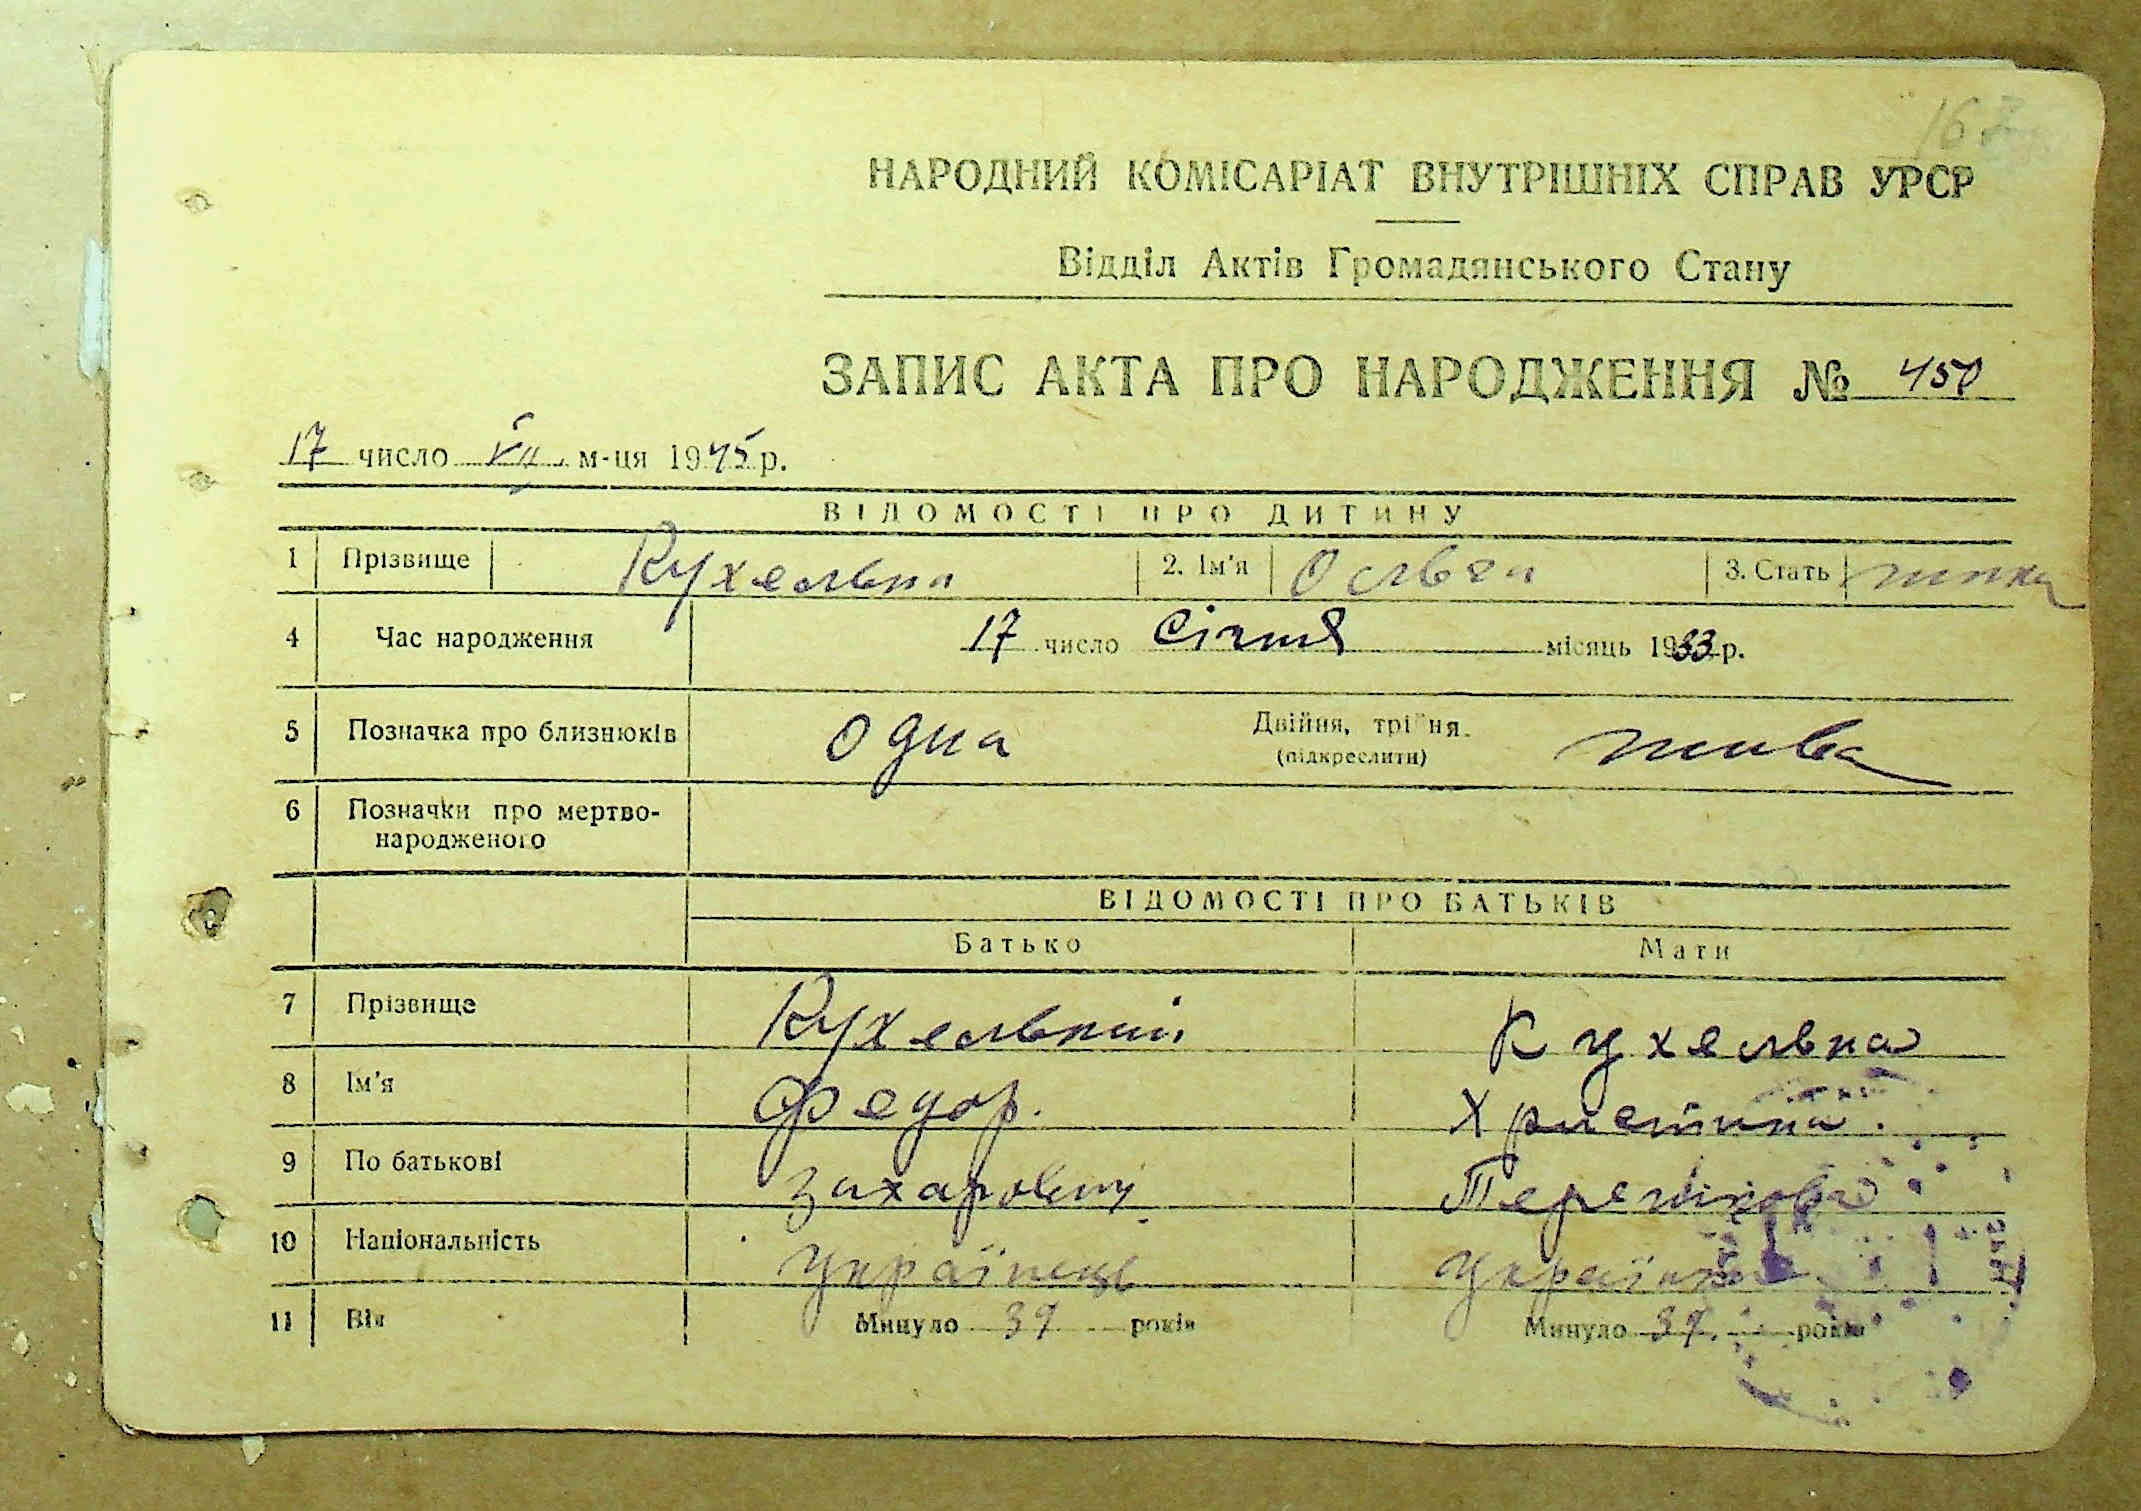 167
НАРОДНИЙ КОМІСАРІАТ ВНУТРІШНІХ СПРАВ УРСР
Відділ Актів Громадянського Стану
ЗАПИС АКТА ПРО НАРОДЖЕННЯ № 450
17 число VII м-ця 1945 р.
ВІДОМОСТІ ПРО ДИТИНУ
1 Прізвище Кухельна 2. Ім'я Ольга 3. Стать жінка
4 Час народження 17 число Січня місяць 1933 р.
5 Позначка про близнюків одна Двійня, трійня. жива
(підкреслити)
6 Позначки про мертво-
народженого
ВІДОМОСТІ ПРО БАТЬКІВ
Батько Мати
7 Прізвище Кухельний Кухельна
8 Ім'я Федор. Христина.
9 По батькові Захарович
10 Національність Українець Українка
11 Вік Минуло 39 років Минуло 37 років